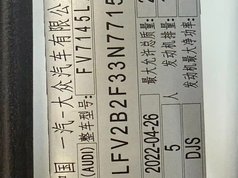 中国 一汽-大众汽车有限
整车型号: FV7145L
(AUDI)
LFV2B2F33N7715
最大允许总质量:
2022-04-26
发动机排量:
5
发动机最大净功率:
DJS